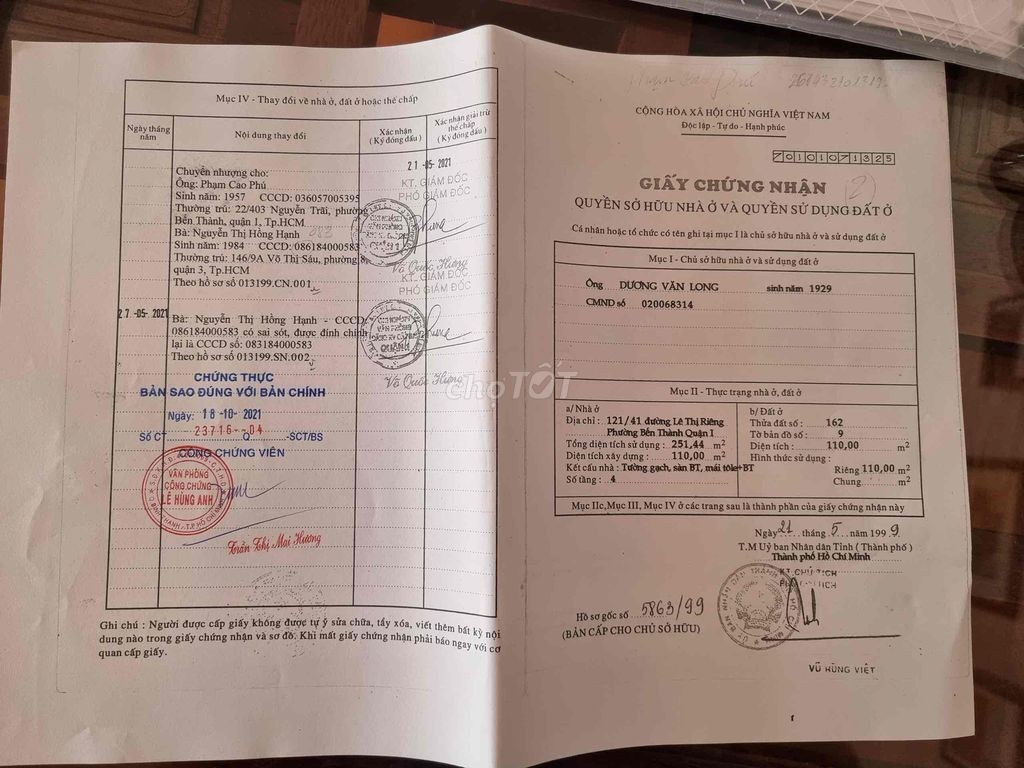 Mục IV - Thay đổi về nhà ở, đất ở hoặc thế chấp
Ngày tháng năm
Nội dung thay đổi
Xác nhận (Ký đóng dấu)
Xác nhận giải trừ thế chấp (Ký đóng dấu)
21-05-2021
KT. GIÁM ĐỐC
PHÓ GIÁM ĐỐC
Chuyển nhượng cho:
Ông: Phạm Cao Phú
Sinh năm: 1957 CCCD: 036057005395
Thường trú: 22/403 Nguyễn Trãi, phường
Bến Thành, quận 1, Tp.HCM
Bà: Nguyễn Thị Hồng Hạnh
Sinh năm: 1984 CCCD: 086184000583
Thường trú: 146/9A Võ Thị Sáu, phường 8,
quận 3, Tp.HCM
Theo hồ sơ số 013199.CN.001
Võ Quốc Hưng
KT. GIÁM ĐỐC
PHÓ GIÁM ĐỐC
27-05-2021
Bà: Nguyễn Thị Hồng Hạnh - CCCD
086184000583 có sai sót, được đính chính
lại là CCCD số: 083184000583
Theo hồ sơ số 013199.SN.002
Võ Quốc Hưng
CHỨNG THỰC
BẢN SAO ĐÚNG VỚI BẢN CHÍNH
Ngày: 18-10-2021
Số CT 23716-04 Q -SCT/BS
CÔNG CHỨNG VIÊN
VĂN PHÒNG
CÔNG CHỨNG
LÊ HÙNG ANH
Trần Thị Mai Hương
Ghi chú : Người được cấp giấy không được tự ý sửa chữa, tẩy xóa, viết thêm bất kỳ nội
dung nào trong giấy chứng nhận và sơ đồ. Khi mất giấy chứng nhận phải báo ngay với cơ
quan cấp giấy.
CỘNG HÒA XÃ HỘI CHỦ NGHĨA VIỆT NAM
Độc lập - Tự do - Hạnh phúc
70101071325
GIẤY CHỨNG NHẬN
2
QUYỀN SỞ HỮU NHÀ Ở VÀ QUYỀN SỬ DỤNG ĐẤT Ở
Cá nhân hoặc tổ chức có tên ghi tại mục I là chủ sở hữu nhà ở và sử dụng đất ở
Mục I - Chủ sở hữu nhà ở và sử dụng đất ở
Ông DƯƠNG VĂN LONG sinh năm 1929
CMND số 020068314
Mục II - Thực trạng nhà ở, đất ở
a/ Nhà ở
Địa chỉ : 121/41 đường Lê Thị Riêng
Phường Bến Thành Quận 1
Tổng diện tích sử dụng : 251,44 m2
Diện tích xây dựng : 110,00 m2
Kết cấu nhà : Tường gạch, sàn BT, mái tôle+BT
Số tầng : 4
b/ Đất ở
Thửa đất số : 162
Tờ bản đồ số : 9
Diện tích : 110,00 m2
Hình thức sử dụng :
Riêng 110,00 m2
Chung m2
Mục IIc, Mục III, Mục IV ở các trang sau là thành phần của giấy chứng nhận này
Ngày 21 tháng 5 năm 1999
T.M Uỷ ban Nhân dân Tỉnh ( Thành phố )
Thành phố Hồ Chí Minh
KT CHỦ TỊCH
Hồ sơ gốc số 5863/99
(BẢN CẤP CHO CHỦ SỞ HỮU)
VŨ HÙNG VIỆT
chợTỐT